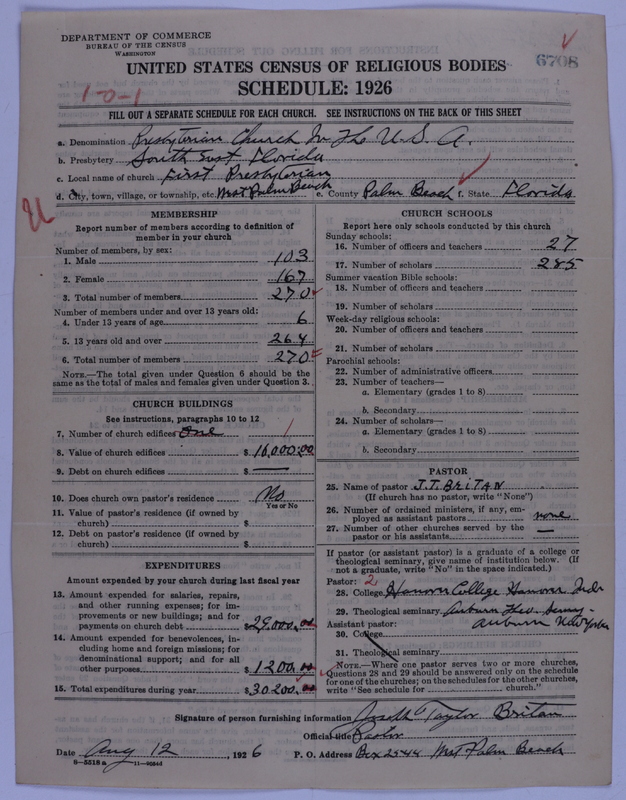 DEPARTMENT OF COMMERCE
BUREAU OF THE CENSUS
WASHINGTON
6708
UNITED STATES CENSUS OF RELIGIOUS BODIES
SCHEDULE: 1926
1-0-1
FILL OUT A SEPARATE SCHEDULE FOR EACH CHURCH. SEE INSTRUCTIONS ON THE BACK OF THIS SHEET
a. Denomination Presbyterian Church In The U.S.A.
b. Presbytery South East Florida
c. Local name of church First Presbyterian
d. City, town, village, or township, etc. West Palm Beach e. County Palm Beach f. State Florida
MEMBERSHIP
Report number of members according to definition of
member in your church
Number of members, by sex:
1. Male 103
2. Female 167
3. Total number of members 270
Number of members under and over 13 years old:
4. Under 13 years of age 6
5. 13 years old and over 264
6. Total number of members 270
NOTE.—The total given under Question 6 should be
same as the total of males and females given under Question 3.
CHURCH BUILDINGS
See instructions, paragraphs 10 to 12
7. Number of church edifices One 1
8. Value of church edifices $ 16,000.00
9. Debt on church edifices $ —
10. Does church own pastor's residence No
Yes or No
11. Value of pastor's residence (if owned by
church) $
12. Debt on pastor's residence (if owned by
church) $
EXPENDITURES
Amount expended by your church during last fiscal year
13. Amount expended for salaries, repairs,
and other running expenses; for im-
provements or new buildings; and for
payments on church debt $ 29,000.00
14. Amount expended for benevolences, in-
cluding home and foreign missions; for
denominational support; and for all
other purposes $ 1200.00
15. Total expenditures during year $ 30,200.00
CHURCH SCHOOLS
Report here only schools conducted by this church
Sunday schools:
16. Number of officers and teachers 27
17. Number of scholars 285
Summer vacation Bible schools:
18. Number of officers and teachers
19. Number of scholars
Week-day religious schools:
20. Number of officers and teachers
21. Number of scholars
Parochial schools:
22. Number of administrative officers
23. Number of teachers—
a. Elementary (grades 1 to 8)
b. Secondary
24. Number of scholars—
a. Elementary (grades 1 to 8)
b. Secondary
PASTOR
25. Name of pastor J.T. BRITAN
(If church has no pastor, write "None")
26. Number of ordained ministers, if any, em-
ployed as assistant pastors none
27. Number of other churches served by the
pastor or his assistants —
If pastor (or assistant pastor) is a graduate of a college or
theological seminary, give name of institution below. (If
not a graduate, write "No" in the space indicated.)
Pastor: 2
28. College Hanover College Hanover Indi
29. Theological seminary Auburn Theo. Seminy-
Assistant pastor: Auburn New York
30. College
31. Theological seminary
NOTE.—Where one pastor serves two or more churches,
Questions 28 and 29 should be answered only on the schedule
for one of the churches; on the schedules for the other churches,
write "See schedule for church."
Signature of person furnishing information Joseph Taylor Britan
Official title Pastor
Date Aug 12, 1926 P. O. Address Box 2544 West Palm Beach